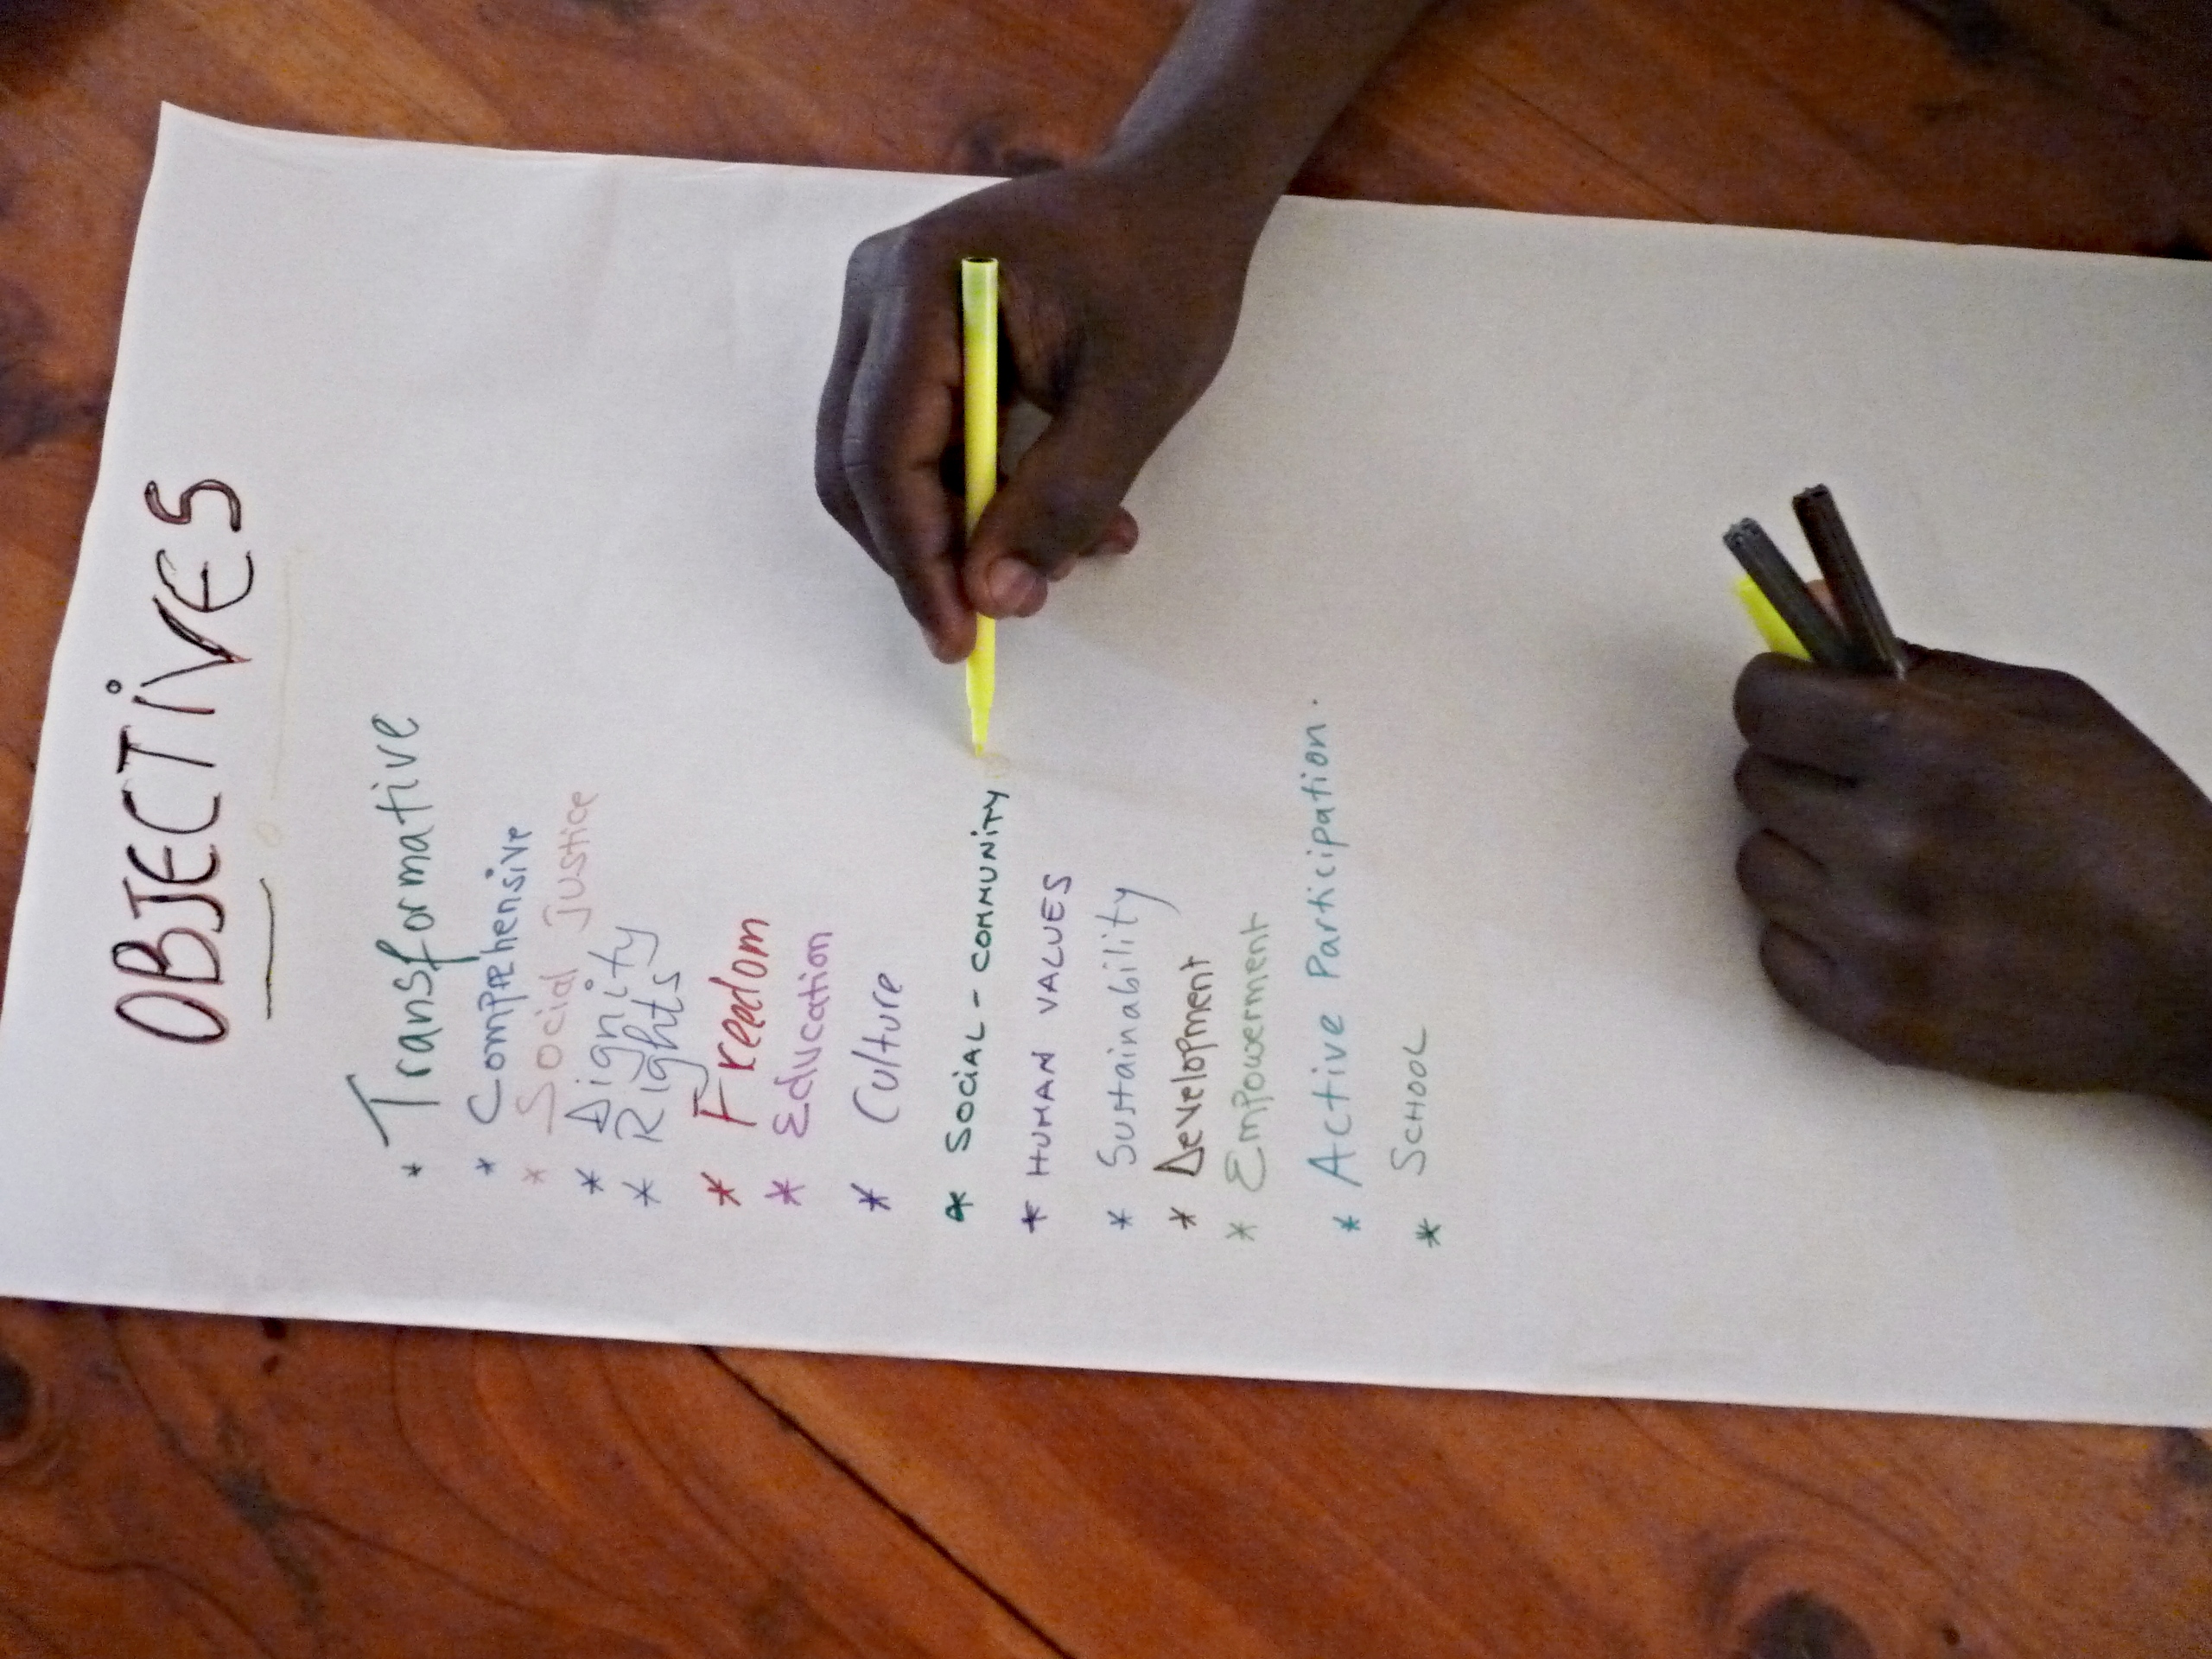 OBJECTIVES
* Transformative
* Comprehensive
* Social Justice
* Dignity
* Rights
* Freedom
* Education
* Culture
* SOCIAL - COMMUNITY
* HUMAN VALUES
* Sustainability
* Development
* Empowerment
* Active Participation.
* SCHOOL